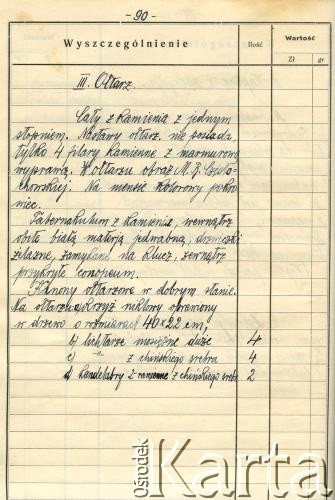 - 90 -
Wyszczególnienie
Ilość
Wartość
Zł
gr
III. Ołtarz.
Cały z kamienia z jednym
stopniem. Nastawy ołtarz. nie posiada
tylko 4 filary kamienne z marmurową
wyprawą. W ołtarzu obraz M.B. Często-
chowskiej. Na mensie kolorowy pokro-
wiec.
Tabernakulum z kamienia, wewnątrz
obite białą materją jedwabną, drzwiczki
żelazne, zamykane na klucz, zewnątrz
przykryte conopeum.
Kanony ołtarzowe w dobrym stanie.
Na ołtarzu a) krzyż niklowy oprawiony
w drzewo o rozmiarach 40 x 22 cm,
b) lichtarze mosiężne duże 4
c) -"- z chińskiego srebra 4
d) kandelabry 2 ramienne z chińskiego srebr 2
Ośrodek
Karta
www.karta.org.pl